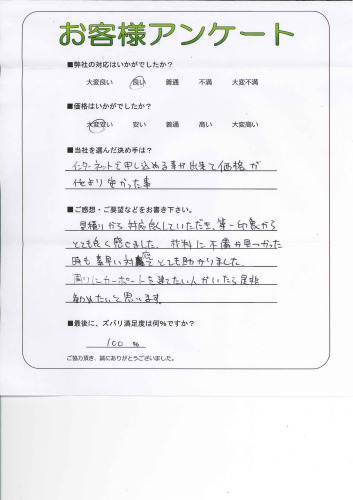 お客様アンケート
■弊社の対応はいかがでしたか？
大変良い 良い 普通 不満 大変不満
■価格はいかがでしたか？
大変安い 安い 普通 高い 大変高い
■当社を選んだ決め手は？
インターネットで申し込める事が出来て価格が
他より安かった事
■ご感想・ご要望などをお書き下さい。
見積りから対応良くしていただき、第一印象から
とても良く感じました。材料に不備が見つかった
時も素早い対応でとても助かりました。
周りにカーポートを建てたい人がいたら是非
勧めたいと思います。
■最後に、ズバリ満足度は何%ですか？
100 %
ご協力頂き、誠にありがとうございました。